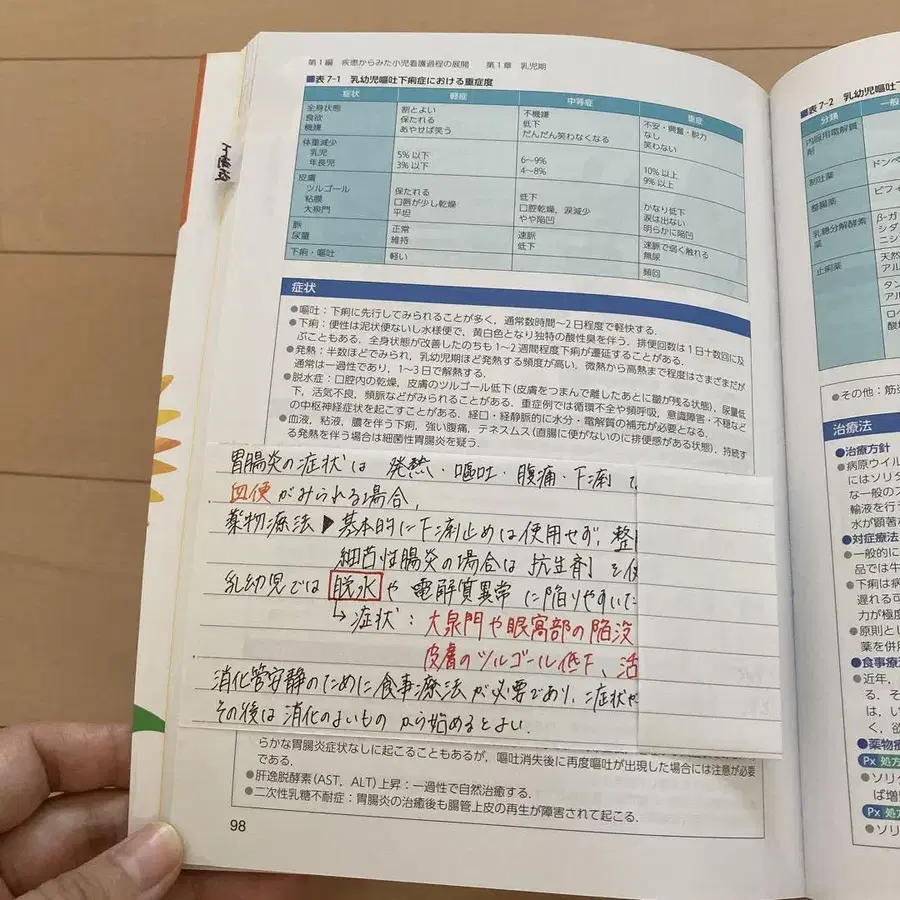 第1編 疾患からみた小児看護過程の展開 第1章 乳児期
■表7-1 乳幼児嘔吐下痢症における重症度
症状 軽症 中等症 重症
全身状態 割とよい 不機嫌 不安・興奮・脱力
食欲 保たれる 低下 なし
機嫌 あやせば笑う だんだん笑わなくなる 笑わない
体重減少
乳児 5%以下 6~9% 10%以上
年長児 3%以下 4~8% 9%以上
皮膚
ツルゴール 保たれる 低下 かなり低下
粘膜 口唇が少し乾燥 口腔乾燥,涙減少 涙は出ない
大泉門 平坦 やや陥凹 明らかに陥凹
脈 正常 速脈 速脈で弱く触れる
尿量 維持 低下 無尿
下痢・嘔吐 軽い 頻回
症状
●嘔吐:下痢に先行してみられることが多く,通常数時間~2日程度で軽快する.
●下痢:便性は泥状便ないし水様便で,黄白色となり独特の酸性臭を伴う.排便回数は1日十数回に及
ぶこともある.全身状態が改善したのちも1~2週間程度下痢が遷延することがある.
●発熱:半数ほどでみられ,乳幼児期ほど発熱する頻度が高い.微熱から高熱まで程度はさまざまだが
通常は一過性であり,1~3日で解熱する.
●脱水症:口腔内の乾燥,皮膚のツルゴール低下(皮膚をつまんで離したあとに皺が残る状態),尿量低
下,活気不良,頻脈などがみられることがある.重症例では循環不全や頻呼吸,意識障害・不穏など
の中枢神経症状を起こすことがある.経口・経静脈的に水分・電解質の補充が必要となる.
●血液,粘液,膿を伴う下痢,強い腹痛,テネスムス(直腸に便がないのに排便感がある状態),持続す
る発熱を伴う場合は細菌性胃腸炎を疑う.
胃腸炎の症状は 発熱・嘔吐・腹痛・下痢
血便がみられる場合,
薬物療法▶基本的に下痢止めは使用せず,整
細菌性腸炎の場合は 抗生剤 を使
乳幼児では 脱水 や 電解質異常 に陥りやすいた
↳症状:大泉門や眼窩部の陥没
皮膚のツルゴール低下、活
消化管安静のために食事療法が必要であり、症状が
その後は消化のよいもの から始めるとよい.
らかな胃腸炎症状なしに起こることもあるが,嘔吐消失後に再度嘔吐が出現した場合には注意が必要
である.
●肝逸脱酵素(AST,ALT)上昇:一過性で自然治癒する.
●二次性乳糖不耐症:胃腸炎の治癒後も腸管上皮の再生が障害されて起こる.
98
■表7-2 乳幼児嘔吐下
分類 一般
内服用電解質
剤
制吐薬 ドンペ
整腸薬 ビフィ
乳糖分解酵素
薬
β-ガ
シダ
ニシ
止痢薬 天然
アル
タン
アル
ロペ
酸塩
●その他:筋
治療法
●治療方針
●病原ウイル
にはソリタ
な一般のス
輸液を行う
水が顕著な
●対症療法
●一般的に
品では牛
●下痢は病
遅れる可
力が極度
●原則とし
薬を併用
●食事療法
●近年,
る.そ
は,い
く,欲
●薬物療
Px 処方
●ソリタ
ば増
Px 処方
●ソリ